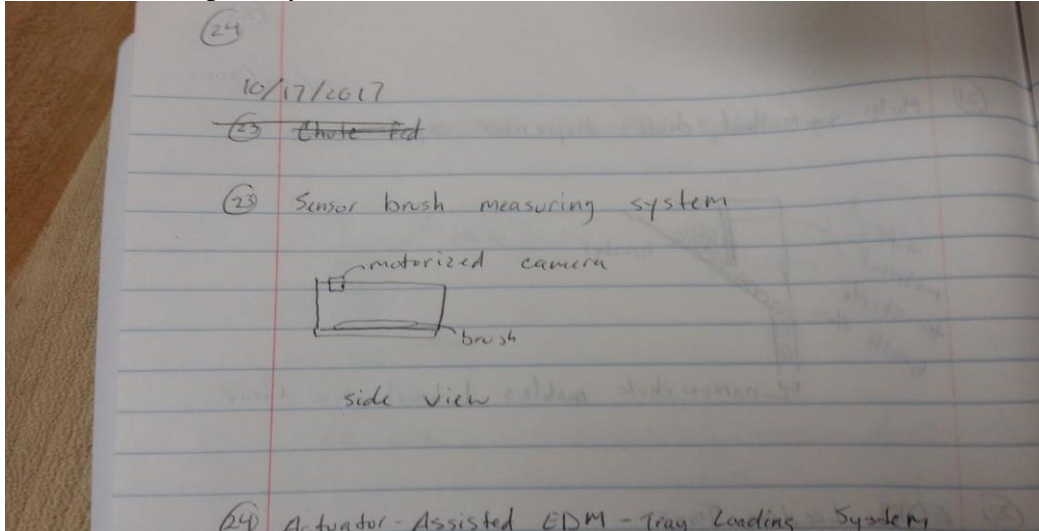 (24)
10/17/2017
(23) Chute Fed
(23) Sensor brush measuring system
motorized camera
brush
side view
(24) Actuator-Assisted EDM-Tray Loading System